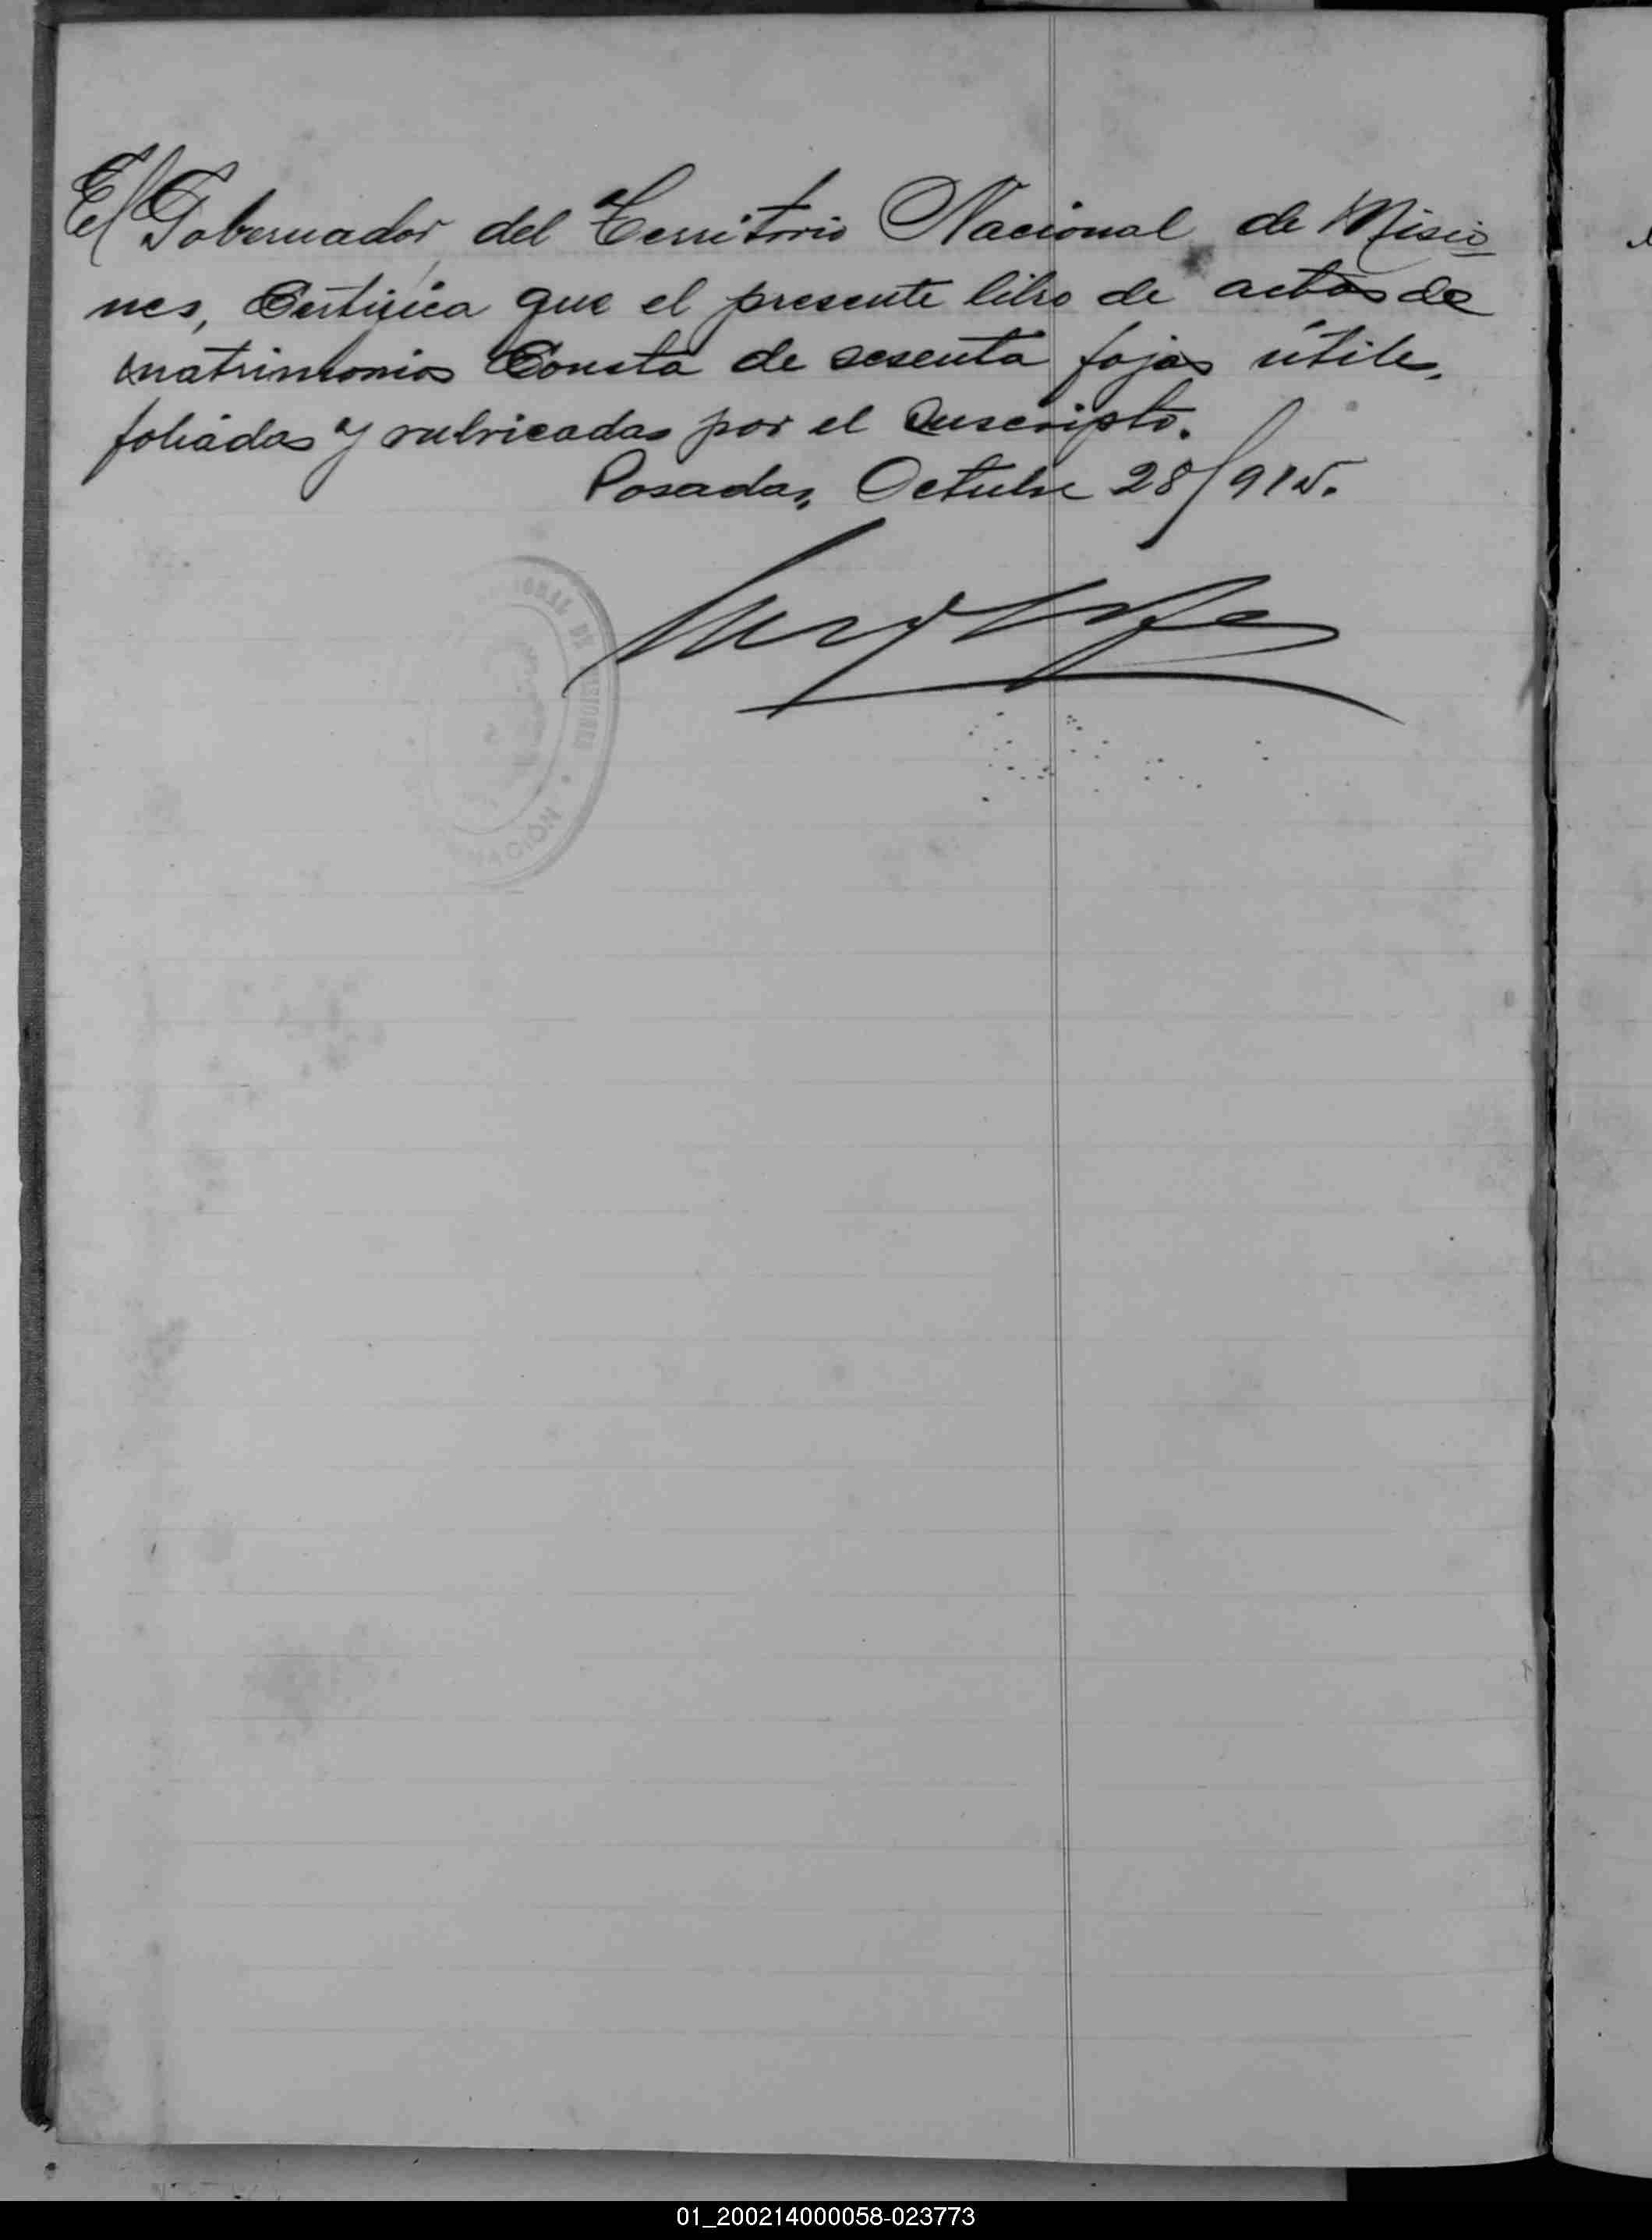 El Gobernador del Territorio Nacional de Misio
nes, Certifica que el presente libro de actas de
matrimonios Consta de sesenta fojas útiles,
foliadas y rubricadas por el Suscripto.
Posadas, Octubre 28/915.
NACIONAL DE MISIONES
NACION
01_200214000058-023773